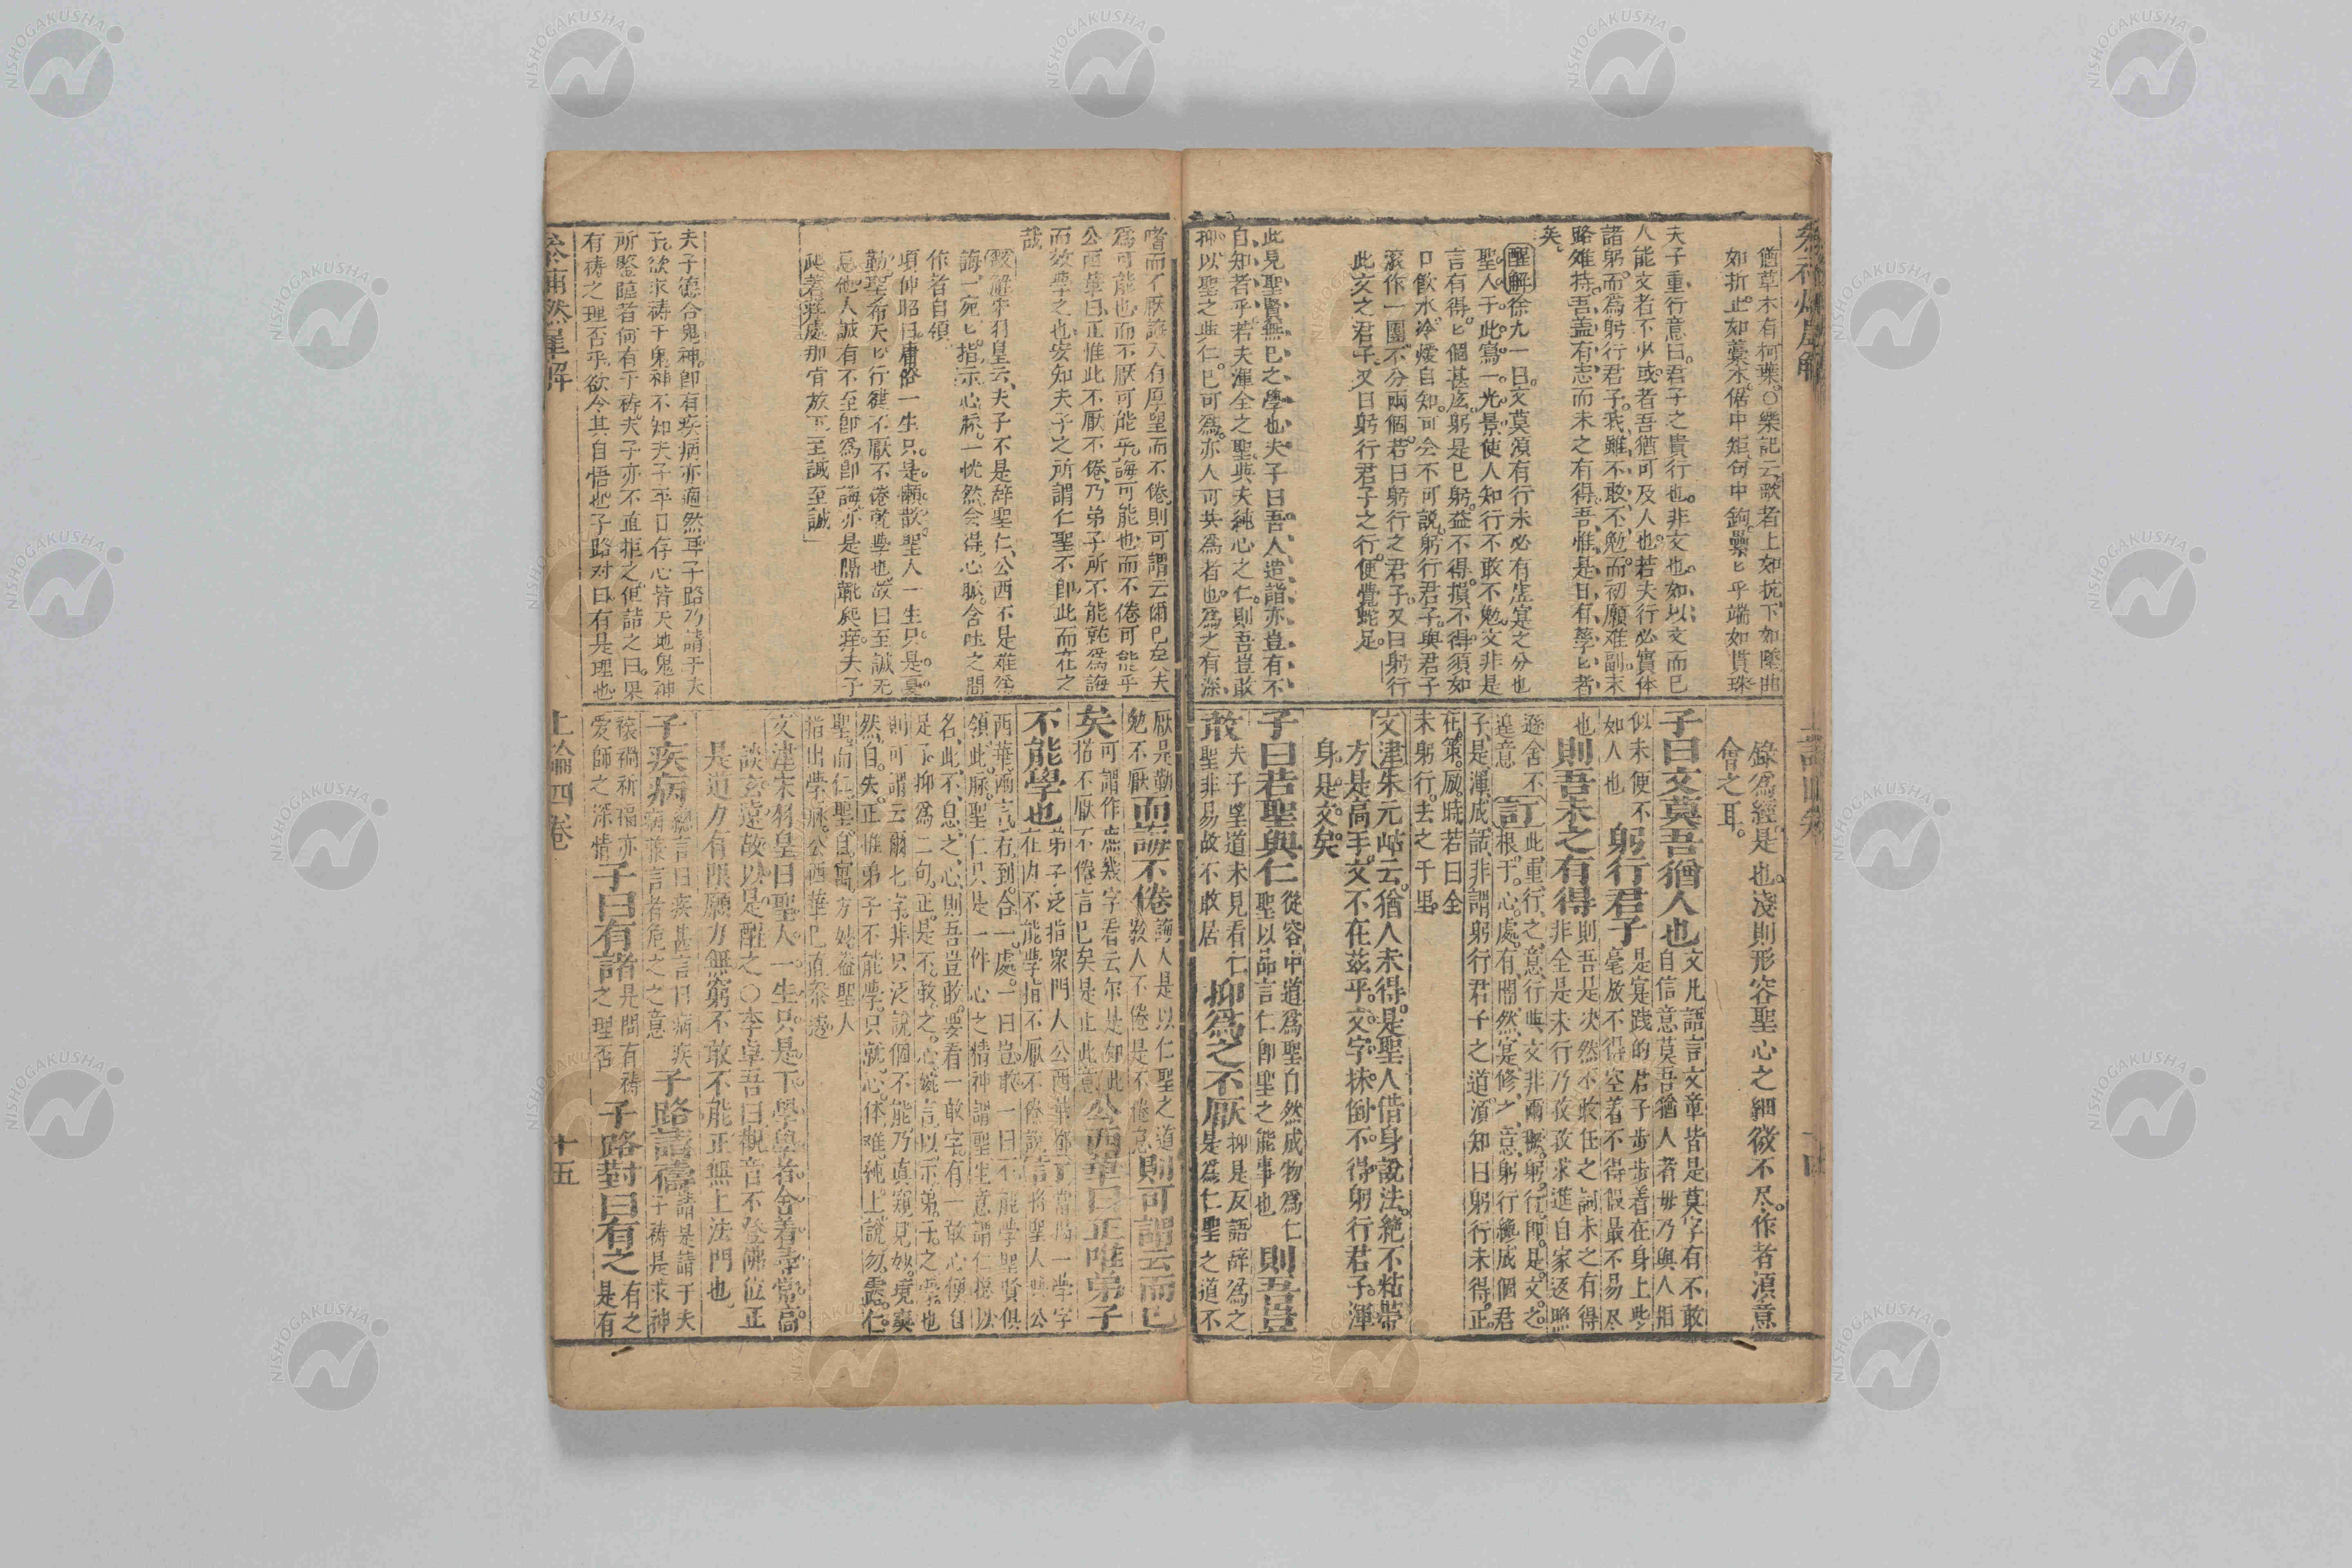 猶草木有柯葉○樂記云歌者上如抗下如墜曲
如折止如藁木倨中矩句中鉤纍〻乎端如貫珠
夫子重行意曰君子之貴行也非文也如以文而已
人能文者不必或者吾猶可及人也若夫行必實体
諸躬而為躬行君子我雖不敢不勉而初願难副末
路难持吾盖有志而未之有得吾惟是日有孳〻者
矣
醒解徐九一曰文莫須有行未必有虛寔之分也
聖人于此寫一光景使人知行不敢不勉文非是
言有得〻個甚庅躬是已躬益不得損不得須如
口飲水冷煖自知可会不可說躬行君子與君子
滚作一團不分兩個若曰躬行之君子又曰躬行
此文之君子又曰躬行君子之行便覺蛇足
此見聖賢無已之學也夫子曰吾人造詣亦豈有不
自知者乎若夫渾全之聖與夫純心之仁則吾豈敢
抑以聖之與仁已可為亦人可共為者也為之有深
錄為經是也淺則形容聖心之細微不尽作者須意
會之耳
子曰文莫吾猶人也文凡語言文章皆是莫字有不敢
自信意莫吾猶人者毋乃與人相
似未便不
如人也躬行君子是寔践的君子步步着在身上些
毫放不得空着不得假最不易尽
也則吾未之有得則吾是决然不敢任之詞未之有得
非全是未行乃孜孜求進自家返照
遜舍不
遑意訂此重行之意行與文非兩橛躬行即是文之
根于心處有闇然寔修之意躬行纔成個君
子是渾成話非謂躬行君子之道湏知曰躬行未得正
在策厲時若曰全
未躬行去之千里
文津朱元岵云猶人未得是聖人借身說法絶不粘帶
方是高手文不在茲乎文字抹倒不得躬行君子渾
身是文矣
子曰若聖與仁從容中道為聖自然成物為仁
聖以品言仁即聖之能事也則吾豈
敢夫子望道未見看仁
聖非易故不敢居抑為之不厭抑是反語辞為之
是為仁聖之道不
嗜而不厭誨人有厚望而不倦則可謂云爾已矣夫
為可能也而不厭可能乎誨可能也而不倦可能乎
公西華曰正惟此不厭不倦乃弟子所不能乾為誨
而效學之也安知夫子之所謂仁聖不即此而在之
哉
醒解宋羽皇云夫子不是辞聖仁公西不是难為
誨之宛〻指示心脈一恍然会得心脈含吐之間
作者自領
項仲昭曰庸俗一生只是懶散聖人一生只是憂
勤聖希天〻行健不厭不倦就學也故曰至誠无
息他人誠有不至即為即誨亦是隔靴爬痒夫子
此著落處那有放下至誠至誠
夫子德合鬼神即有疾病亦適然耳子路乃請于夫
子欲求祷于鬼神不知夫子平日存心皆天地鬼神
所鑒臨者何有于祷夫子亦不直拒之但詰之曰果
有祷之理否乎欲令其自悟也子路对曰有是理也
厭是勤
勉不厭而誨不倦誨人是以仁聖之道
教人不倦是不倦怠則可謂云而已
矣可謂作庶幾字看云尔是如此
指不厭不倦言已矣是止此意公西華曰正唯弟子
不能學也弟子泛指衆門人公西華
在内不能學指不厭不倦說訂
西華兩言看到合一處一曰豈敢一曰不能學聖賢俱
領此脈聖仁只是一件心之精神謂聖生意謂仁
名此不息之心則吾豈敢要看一敢字有一敢心便自
足下抑為二句正是不敢之心婉言以示弟子之學也
則可謂云爾七字非只泛說個不能乃真窺見妙境爽
然自失正惟弟子不能學只就心体难純上說勿露仁
聖而仁聖自寓方妙益聖人
指出學脈公西華已直
文津宋羽皇曰聖人一生只是下學學者舍着尋常高
談玄遠故以是醒之○李卓吾曰觀音不登佛位正
是道力有限願力無窮不敢不能正無上法門也
子疾病總言曰疾甚言曰病疾
病兼言者危之之意子路請禱請是請于夫
子祷是求神
禳禍祈福亦
爱師之深情子曰有諸是問有祷
之理否子路對曰有之有之
是有
上論四卷
十五